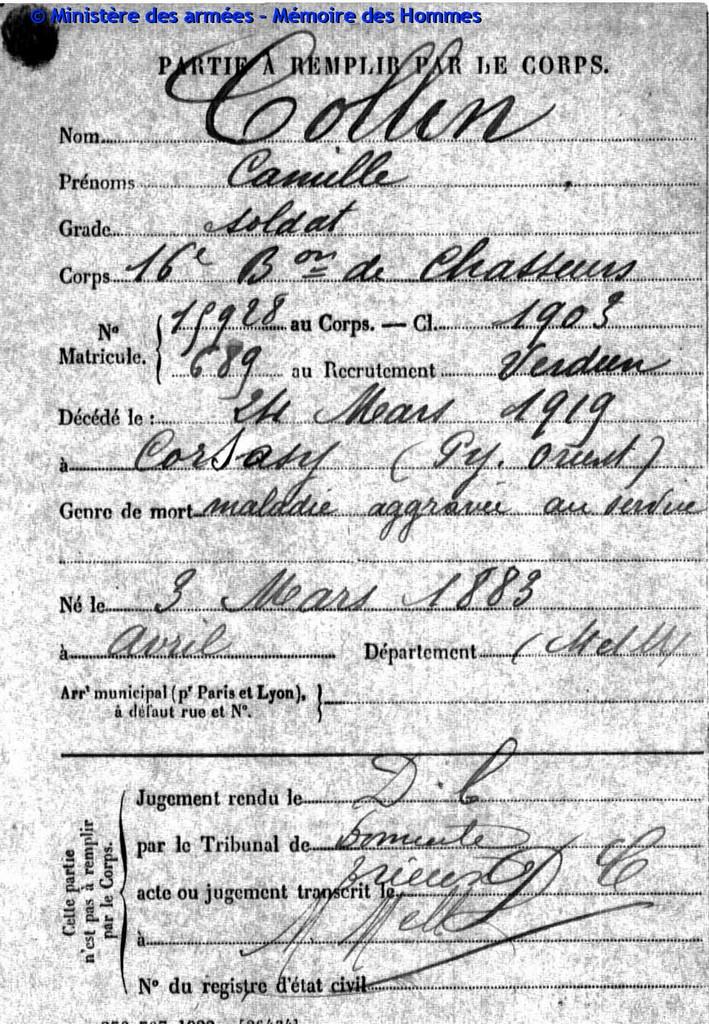 © Ministère des armées - Mémoire des Hommes
PARTIE À REMPLIR PAR LE CORPS.
Nom Collin
Prénoms Camille
Grade soldat
Corps 16e Bon de Chasseurs
No Matricule. { 15928 au Corps. — Cl. 1903
689 au Recrutement Verdun
Décédé le : 24 Mars 1919
à Corsavy (Py. Orient)
Genre de mort maladie aggravée au service
Né le 3 Mars 1883
à Avril Département (M et M)
Arrt municipal (pr Paris et Lyon), }
à défaut rue et No.
Cette partie n'est pas à remplir par le Corps.
Jugement rendu le D. C
par le Tribunal de
acte ou jugement transcrit le
à
No du registre d'état civil